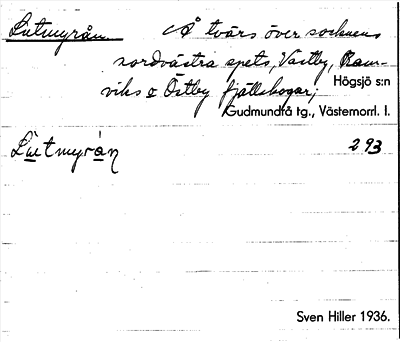 Lutmyrån Å tvärs över socknens
nordvästra spets, Västby, Ram-
viks o Östby fjällskogar;
Högsjö s:n
Gudmundrå tg., Västernorrl. l.
Lutmyrån 293
Sven Hiller 1936.